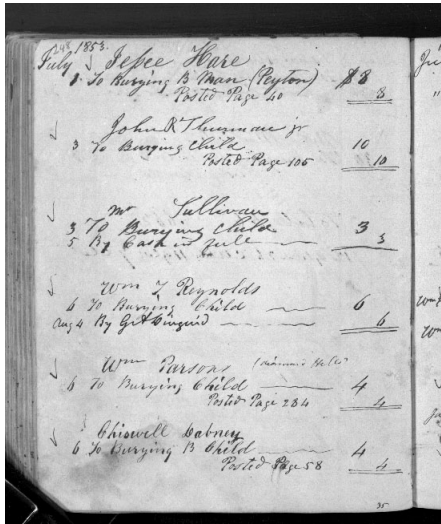 248 1853.
July Jesse Hare
1 To Burying B Man (Peyton) $8
Posted Page 40 8
John R Thurman jr
3 To Burying Child 10
Posted Page 105 10
Mr Sullivan
3 To Burying Child 3
5 By Cash in full 3
Wm T Reynolds
6 To Burying Child 6
Aug 4 By G A Diuguid 6
Wm Parsons
6 To Burying Child 4
Posted Page 234 4
Chiswell Dabney
6 To Burying B Child 4
Posted Page 58 4
35